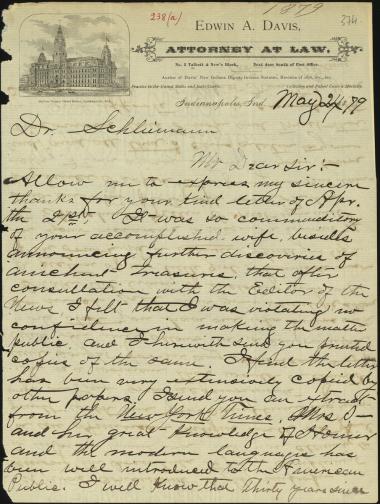 1879
238(a)
324
EDWIN A. DAVIS,
ATTORNEY AT LAW,
No. 3 Talbott & New's Block, Next door South of Post Office.
Practice in the United States and State Courts.
Indianapolis, Ind. May 24 1879
Dr. Schliemann
My Dear Sir:-
Allow me to express my sincere
thanks for your kind letter of Apr.
the 21st. It was so commendatory
of your accomplished wife, besides
announcing further discoveries of
ancient Treasures, that after
consultation with the Editor of the
News I felt that I was violating no
confidence in making the matter
public and I herewith send you printed
copies of the same. I find the letter
has been very extensively copied by
other papers, I send you an extract
from the New York Times, Mrs S-
and her great Knowledge of Homer
and the modern languages has
been well introduced to the American
Public. I well know that thirty years since